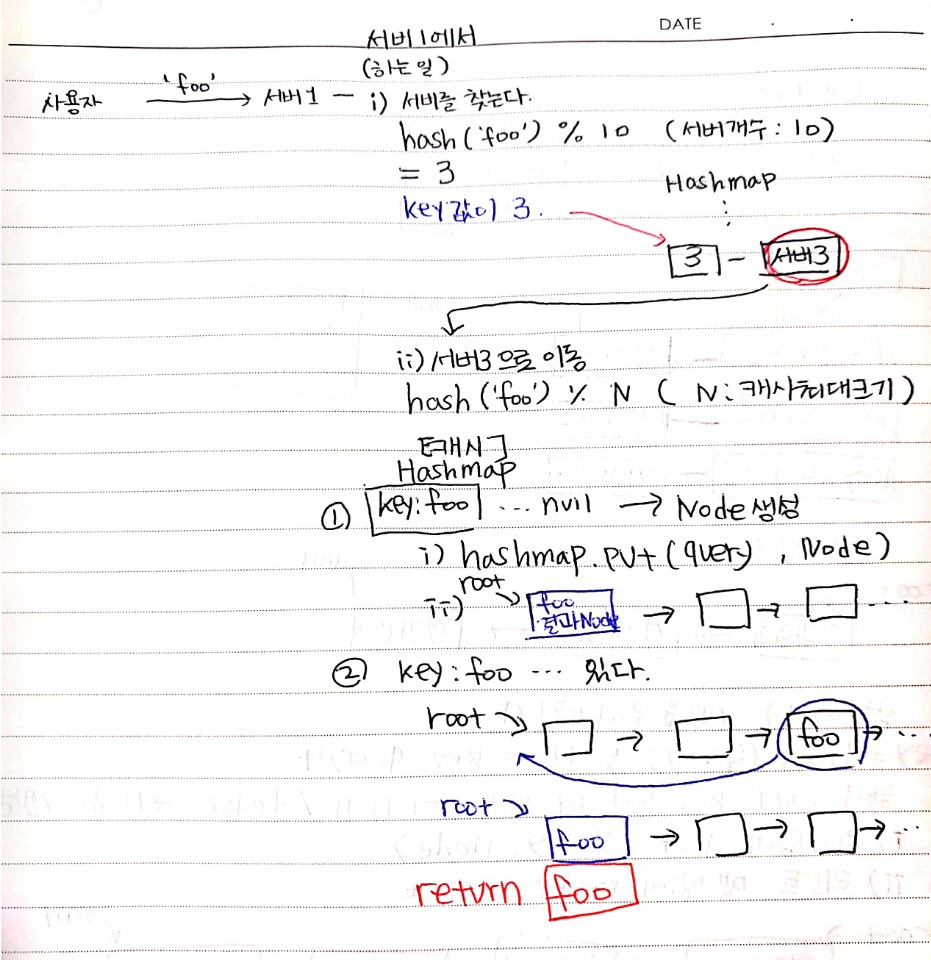 DATE . .
서버1에서
(하는 일)
사용자 'foo' → 서버1 — i) 서버를 찾는다.
hash('foo') % 10 (서버개수 : 10)
= 3
key값이 3.
Hashmap
⋮
3 - 서버3
ii) 서버3으로 이동
hash('foo') % N ( N : 캐시최대크기 )
Hashmap
① key:foo ... null → Node 생성
i) hashmap.put(query, Node)
ii) root
foo
결과Node → → ...
② key : foo ... 있다.
root
→ → foo → ...
root
foo → → → ...
return foo